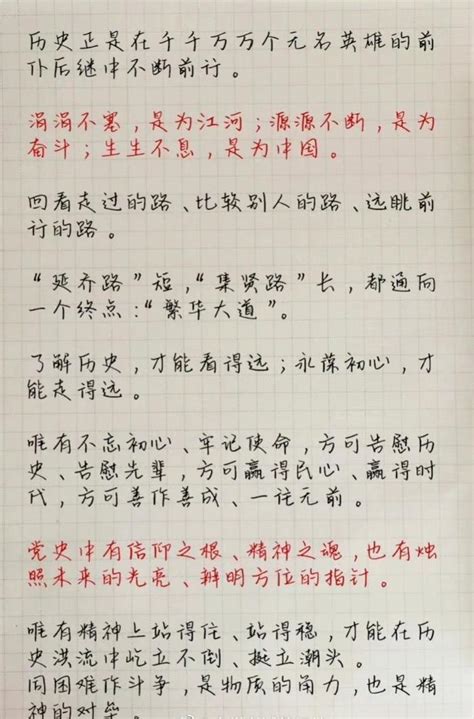 历史正是在千千万万个无名英雄的前
仆后继中不断前行。
涓涓不塞，是为江河；源源不断，是为
奋斗；生生不息，是为中国。
回看走过的路、比较别人的路、远眺前
行的路。
“延乔路”短，“集贤路”长，都通向
一个终点：“繁华大道”。
了解历史，才能看得远；永葆初心，才
能走得远。
唯有不忘初心、牢记使命，方可告慰历
史、告慰先辈，方可赢得民心、赢得时
代，方可善作善成、一往无前。
党史中有信仰之根、精神之魂，也有烛
照未来的光亮、辨明方位的指针。
唯有精神上站得住、站得稳，才能在历
史洪流中屹立不倒、挺立潮头。
同困难作斗争，是物质的角力，也是精
神的对垒。